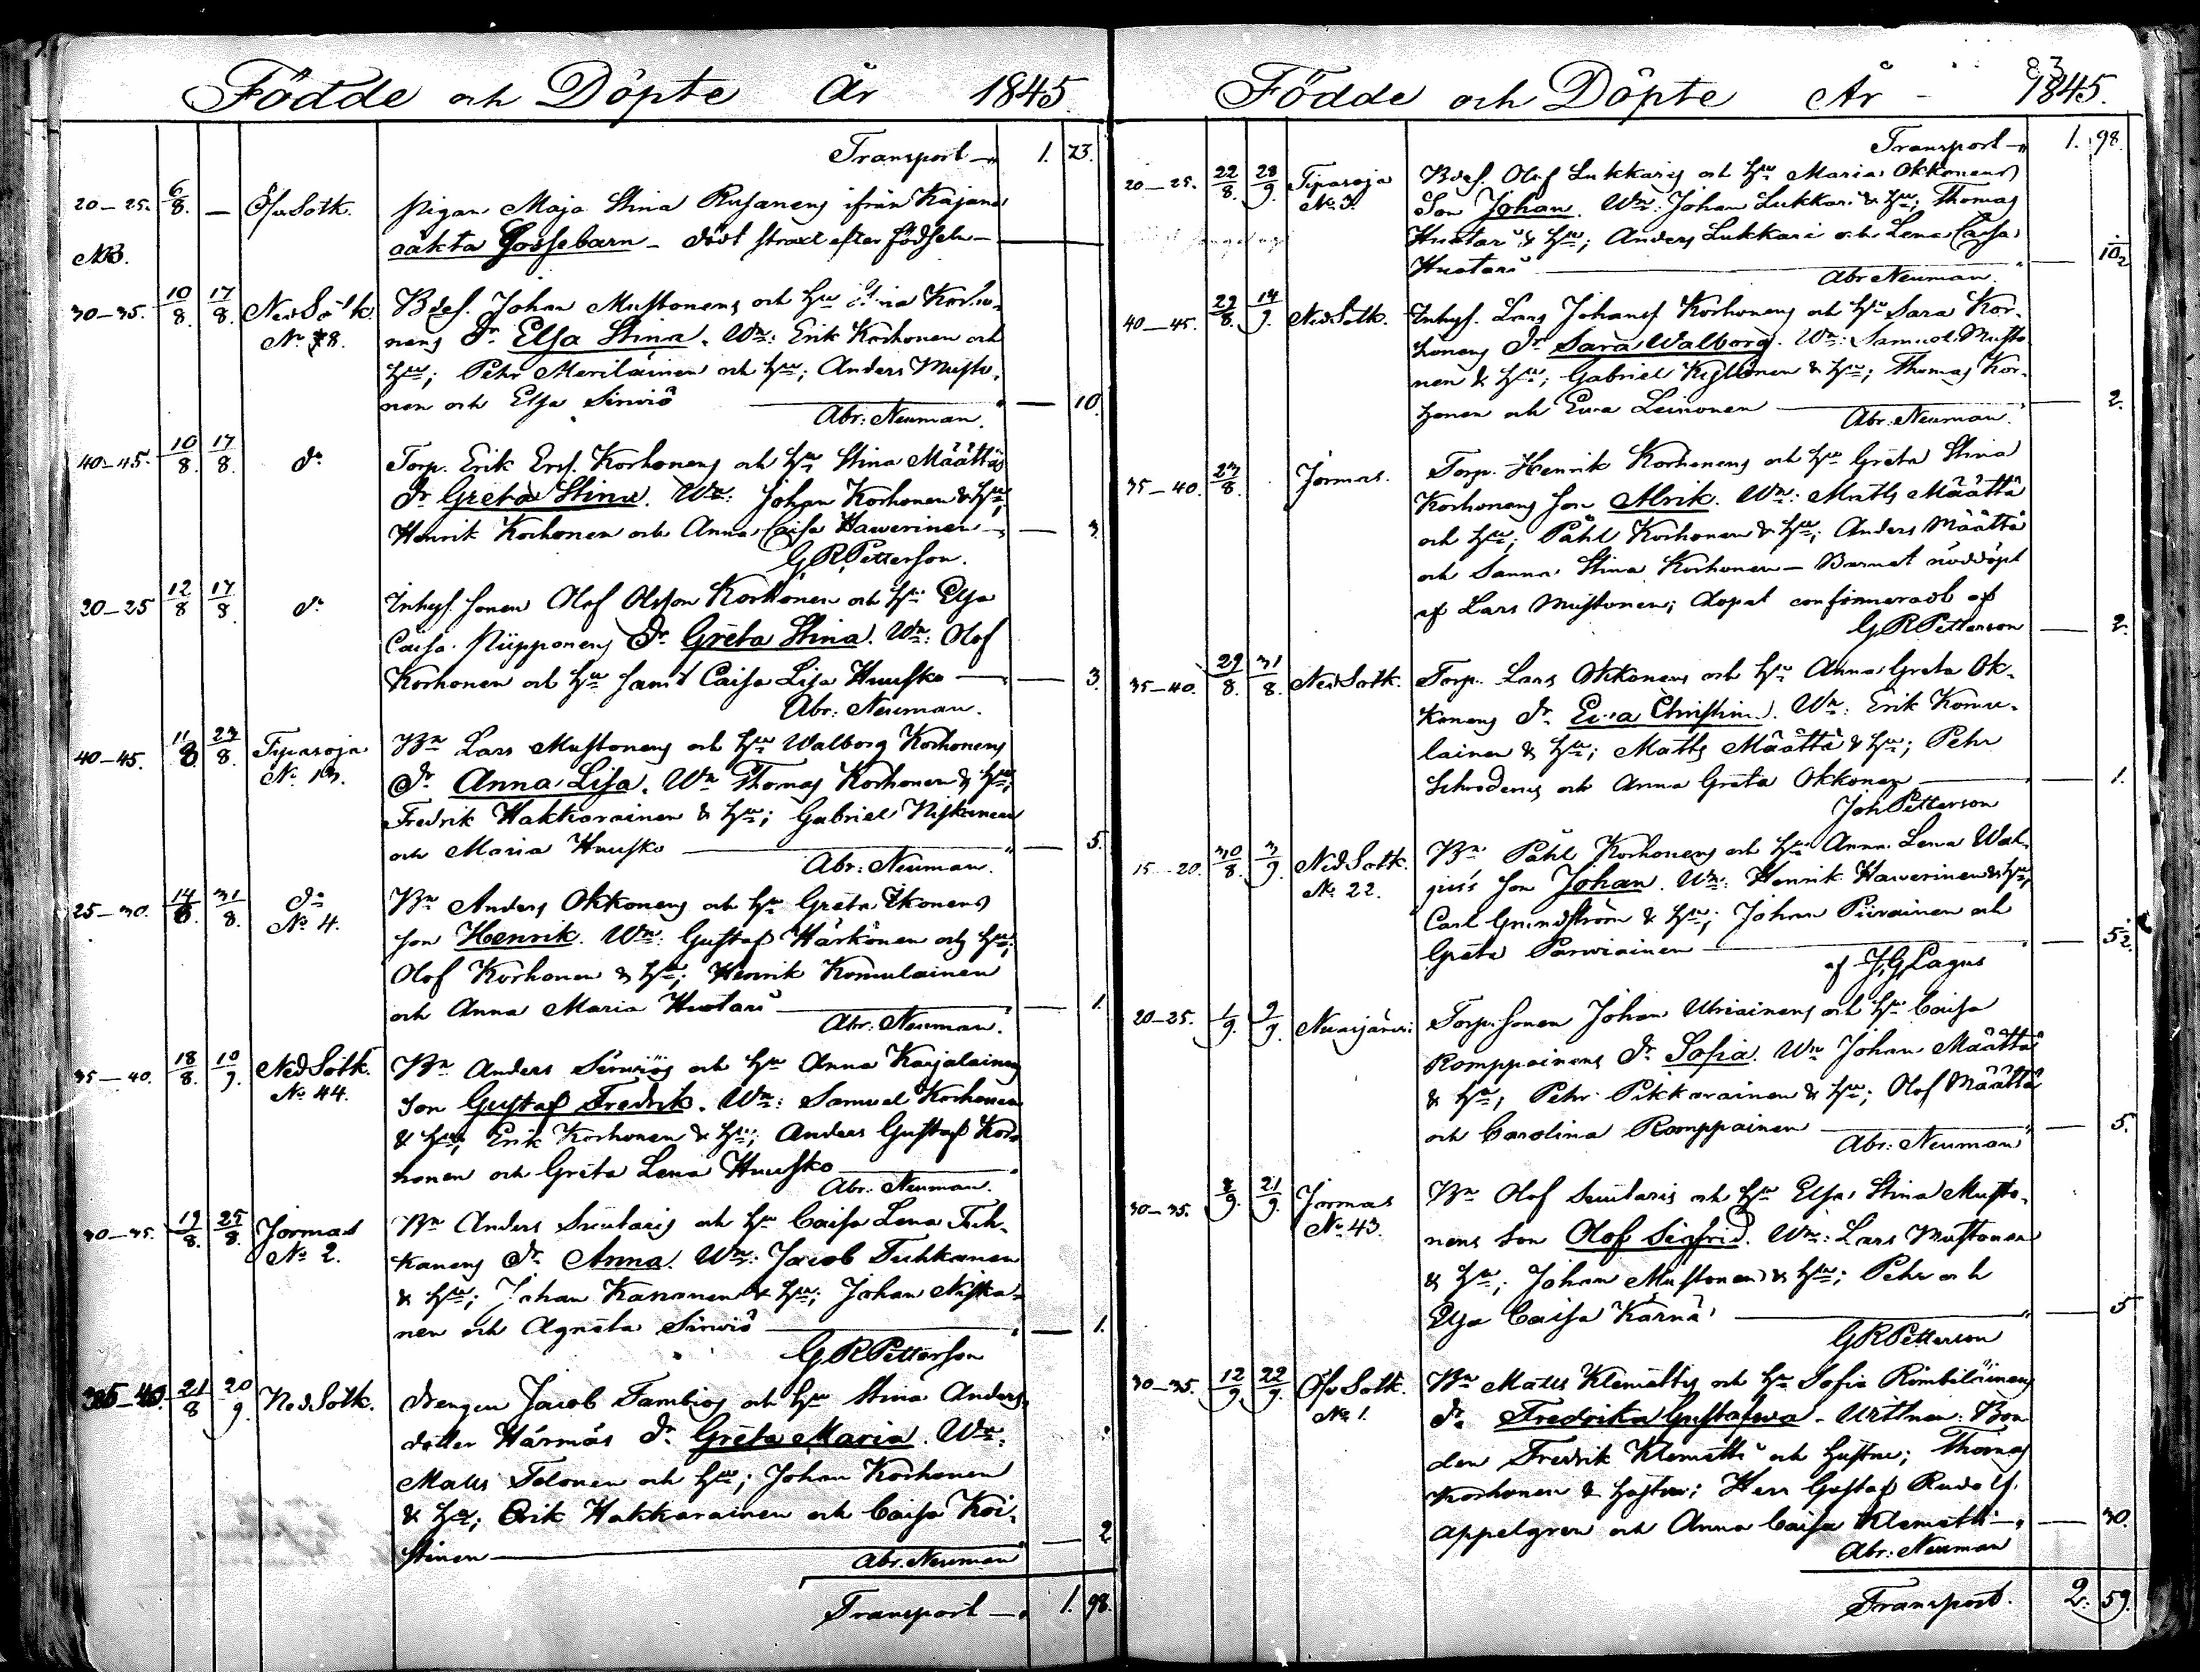 Födde och Döpte År 1845.
Transport — 1. 23.
20—25. 6/8. — Öfv Sotk. Pigan Maja Stina Rusanens ifrån Kajana
oäkta Gossebarn — dödt straxt efter födseln —
NB.
30—35. 10/8. 17/8. Ned Sotk. Bdes. Johan Mustonens och Hu Stina Korho-
No 8. nens Dr Elsa Stina. Wn: Erik Korhonen och
Hu; Pehr Meriläinen och Hu; Anders Musto-
nen och Elsa Sirviö — 10.
Abr: Neuman.
40—45. 10/8. 17/8. do Torp. Erik Ers. Korhonens och Hu Stina Määttäs
Dr Greta Stina. Wn: Johan Korhonen & Hu;
Henrik Korhonen och Anna Caisa Hawerinen — 3
G R Petterson.
20—25 12/8 17/8 do Inhys. sonen Olof Olsson Korhonen och Hu Elsa
Caisa Piipponens Dr Greta Stina. Wn: Olof
Korhonen och Hu samt Caisa Lisa Huusko — 3.
Abr: Neuman.
40—45. 11/8 23/8. Tipasoja Bn Lars Mustonens och Hu Walborg Korhonens
No 13. Dr Anna Lisa. Wn Thomas Korhonen & Hu;
Fredrik Hakkarainen & Hu; Gabriel Niskanen
och Maria Huusko — 5.
Abr: Neuman.
25—30. 14/8. 31/8. do Bn Anders Okkonens och Hu Greta Ikonens
No 4. son Henrik. Wn: Gustaf Härkönen och Hu;
Olof Korhonen & Hu; Henrik Komulainen
och Anna Maria Huotari — 1.
Abr: Neuman.
35—40. 18/8. 10/9. Ned Sotk. Bn Anders Sirviös och Hu Anna Karjalainens
No 44. Son Gustaf Fredrik. Wn: Samuel Korhonen
& Hu; Erik Korhonen & Hu; Anders Gustaf Kor-
honen och Greta Lena Huusko
Abr: Neuman.
30—35. 19/8. 25/8. Jormas Bn Anders Suutaris och Hu Caisa Lena Tuh-
No 2. kanens Dr Anna. Wn: Jacob Tuhkanen
& Hu; Johan Kananen & Hu; Johan Niska-
nen och Agneta Sirviö — 1.
G R Petterson
35—40. 21/8 20/9 Ned Sotk. Drengen Jacob Tambios och Hu Stina Anders-
dotter Härmäs Dr Greta Maria. Wn:
Matts Tolonen och Hu; Johan Korhonen
& Hu; Erik Hakkarainen och Caisa Koi-
stinen — 2
Abr. Neuman
Transport — 1. 98.
83
Födde och Döpte År — 1845.
Transport — 1. 98.
20—25. 22/8. 28/9. Tipasoja Bdes. Olof Lukkaris och Hu Maria Okkonens
No 3. Son Johan. Wn: Johan Lukkari & Hu; Thomas
Huotari & Hu; Anders Lukkari och Lena Caisa
Huotari — 10 1/2
Abr Neuman.
40—45. 22/8. 14/9. Ned Sotk. Inhys. Lars Johans Korhonens och Hu Sara Kor-
honens Dr Sara Walborg. Wn: Samuel Musto
nen & Hu; Gabriel Kylmänen & Hu; Thomas Kor-
honen och Ewa Leinonen — 2.
Abr: Neuman.
35—40. 23/8. Jormas. Torp. Henrik Korhonens och Hu Greta Stina
Korhonens son Alrik. Wn: Matts Määttä
och Hu; Påhl Korhonen & Hu; Anders Määttä
och Sanna Stina Korhonen — Barnet nöddöpt
af Lars Mustonen; dopet confirmeradt af
G R Petterson — 2.
35—40. 29/8. 31/8. Ned Sotk. Torp. Lars Okkonens och Hu Anna Greta Ok-
konens Dr. Ewa Christina. Wn: Erik Komu-
lainen & Hu; Matts Määttä & Hu; Pehr
Schroderus och Anna Greta Okkonen — 1.
Joh Petterson
15—20. 30/8. 3/9. Ned Sotk. Bn Påhl Korhonens och Hu Anna Lena Wal-
No 22. jus's son Johan. Wn: Henrik Hawerinen & Hu;
Carl Grundström & Hu; Johan Piirainen och
Greta Parwiainen — 52.
af J, G Lagus
20—25. 1/9. 2/9. Nuasjärvi: Torp. sonen Johan Utriainens och Hu Caisa
Romppainens Dr Sofia. Wn Johan Määttä
& Hu; Pehr Pikkarainen & Hu; Olof Määttä
och Carolina Romppainen — 5.
Abr: Neuman
30—35. 8/9. 21/9. Jormas Bn Olof Suutaris och Hu Elsa Stina Musto-
No 43. nens Son Olof Sigfrid. Wn: Lars Mustonen
& Hu; Johan Mustonen & Hu; Pehr och
Elsa Caisa Kärnä — 5
G R Petterson
30—35. 12/9. 22/9. Öfv Sotk. Bn Matts Klemettis och Hu Sofia Rimbiläinens
No 1. Dr Fredrika Gustafwa — Wittnen: Bon
den Fredrik Klemetti och Hustru; Thomas
Korhonen & Hustru; Herr Gustaf Rudolf.
Appelgren och Anna Caisa Klemetti — 30.
Abr: Neuman
Transport. 2. 59.